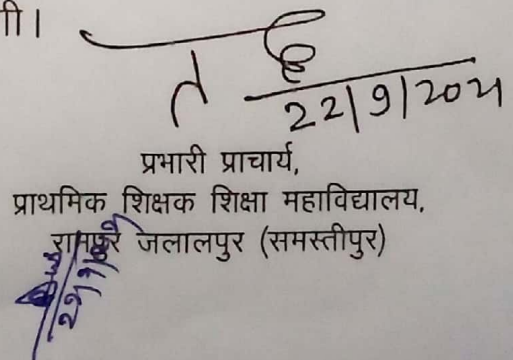 ी।
22/9/2021
प्रभारी प्राचार्य,
प्राथमिक शिक्षक शिक्षा महाविद्यालय,
रामपुर जलालपुर (समस्तीपुर)